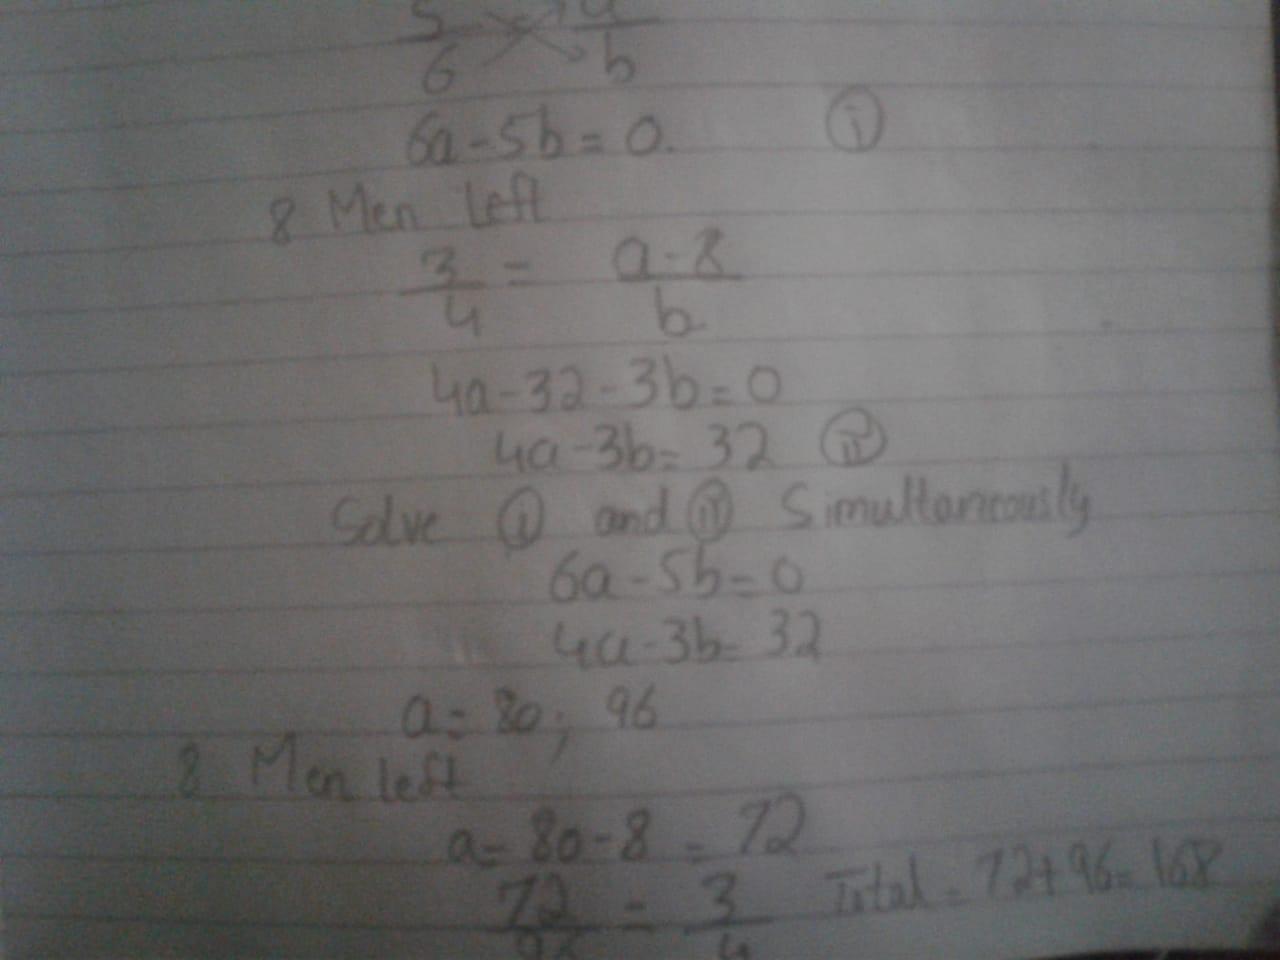 5/6 = a/b
6a-5b=0. (i)
8 Men left
3/4 = a-8/b
4a-32-3b=0
4a-3b=32 (ii)
Solve (i) and (ii) Simultaneously
6a-5b=0
4a-3b=32
a=80; 96
8 Men left
a=80-8=72
72/96 = 3/4 Total=72+96=168